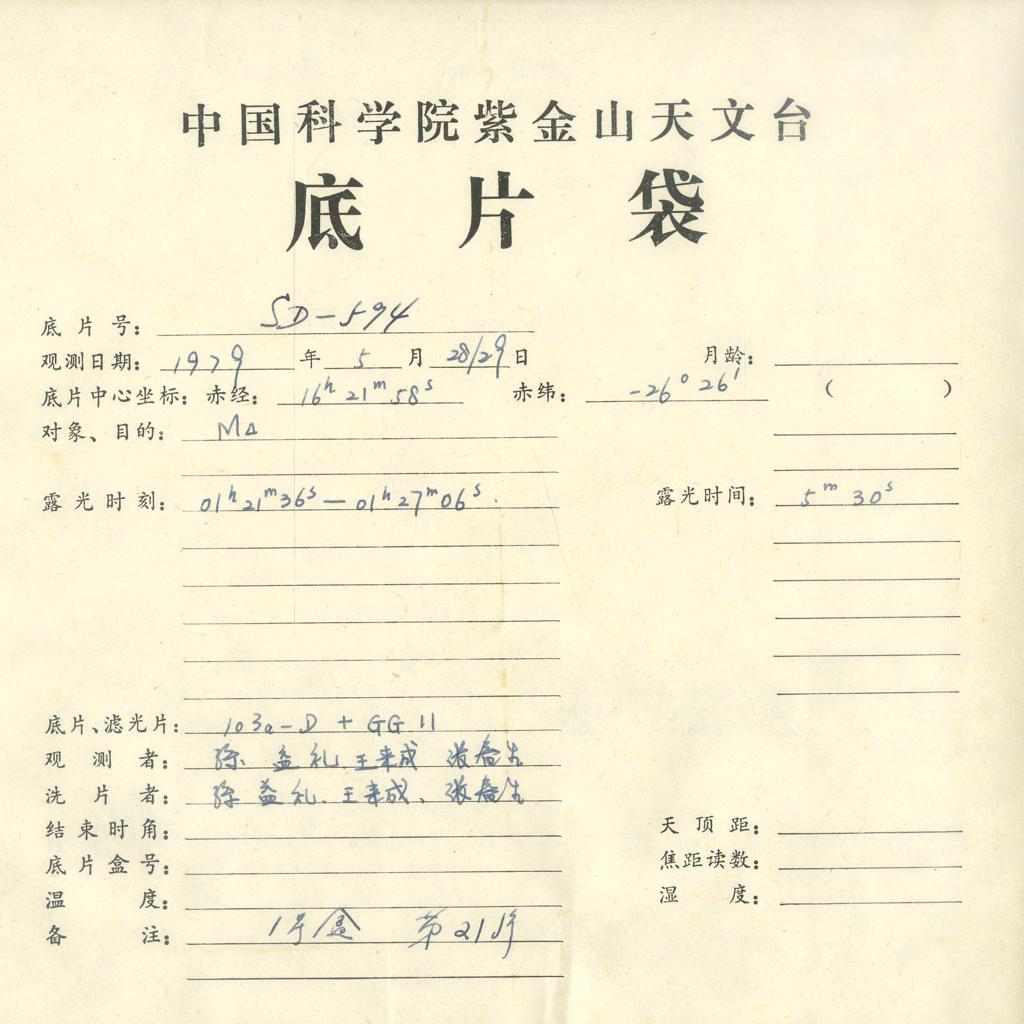 中国科学院紫金山天文台
底片袋
底片号: SD-594
观测日期: 1979 年 5 月 28/29 日 月龄:
底片中心坐标: 赤经: 16h 21m 58s 赤纬: -26° 26′ ( )
对象、目的: M4
露光时刻: 01h 21m 36s — 01h 27m 06s. 露光时间: 5m 30s
底片、滤光片: 103a-D + GG 11
观测者: 孙益礼 王来成 张春生
洗片者: 孙益礼. 王来成、张春生
结束时角: 天顶距:
底片盒号: 焦距读数:
温度: 湿度:
备注: 1号盒 第21片